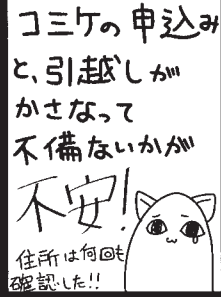 コミケの申込み
と、引越しが
かさなって
不備ないかが
不安!
住所は何回も
確認した!!